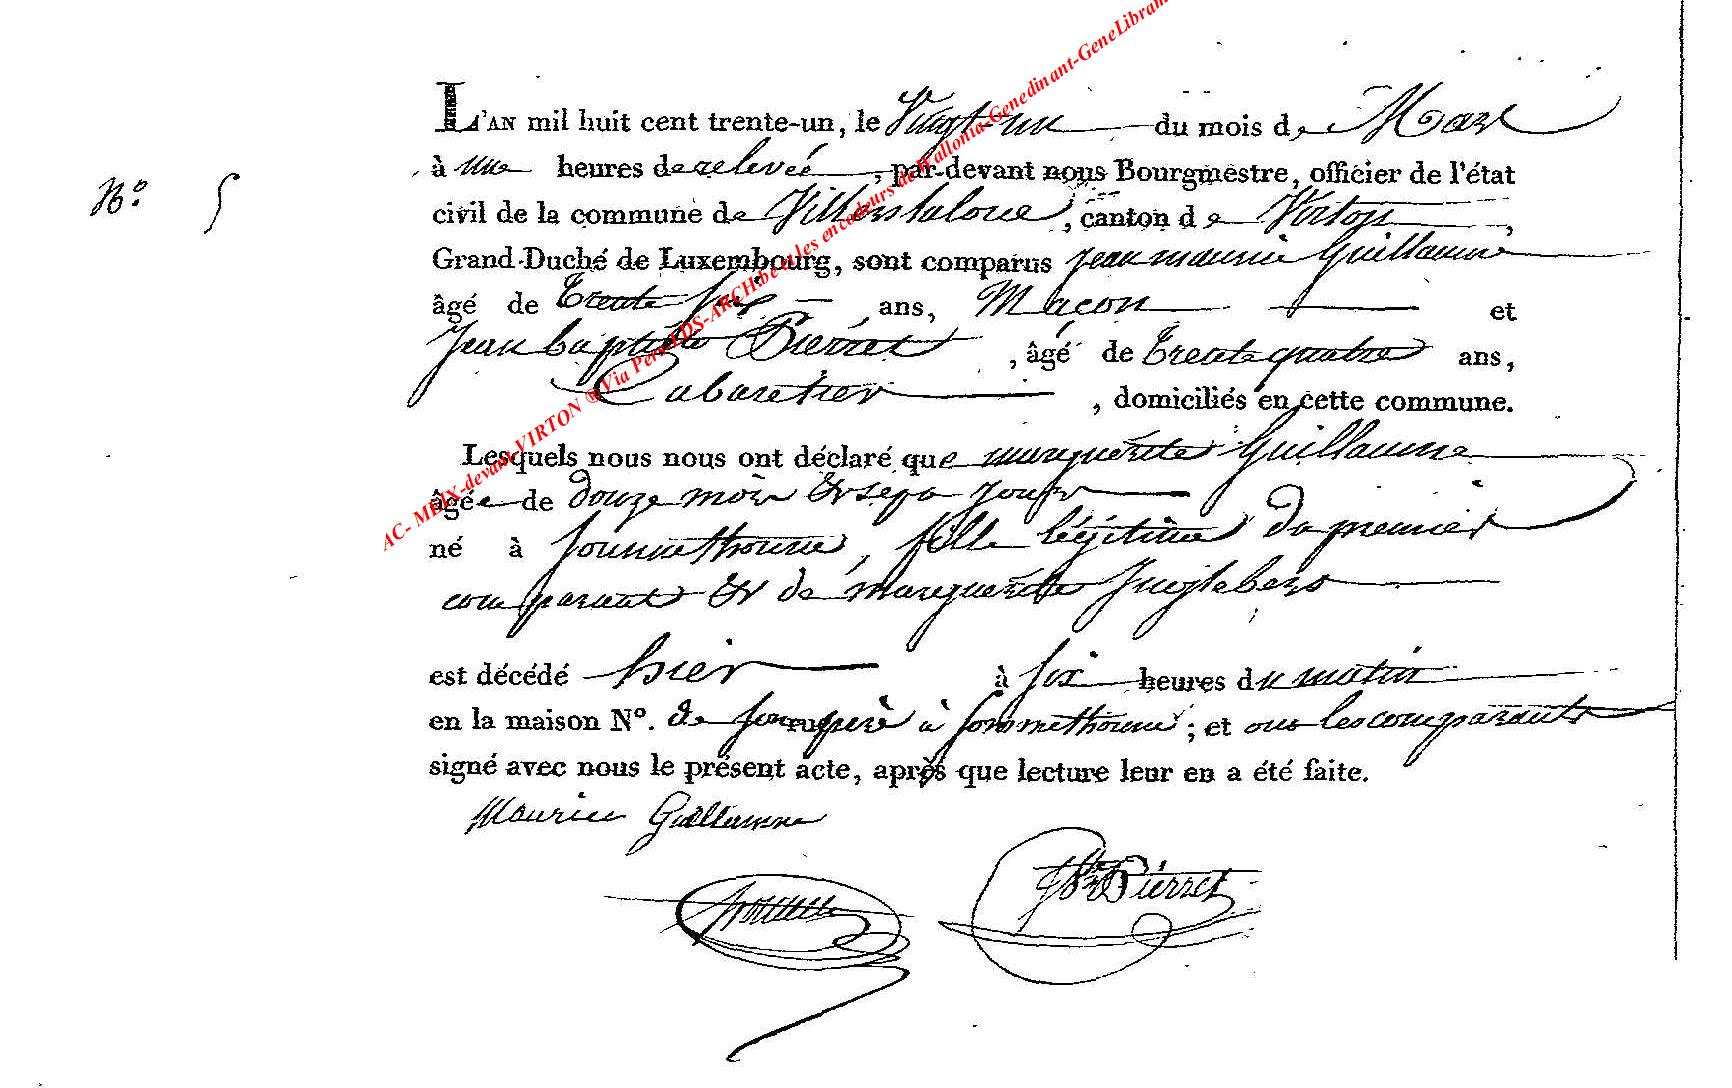 L'AN mil huit cent trente-un, le Vingt un du mois de Mars
N.o 5
à une heures de relevée, par-devant nous Bourgmestre, officier de l'état
civil de la commune de Villerslaloue, canton de Virton,
Grand-Duché de Luxembourg, sont comparus jean maurice Guillaume
âgé de trente six ans, Maçon et
Jean baptiste Pierret, âgé de trente quatre ans,
Cabaretier, domiciliés en cette commune.
Lesquels nous nous ont déclaré que marguerite Guillaume
âgée de douze mois et sept jours
né à Sommethonne, fille légitime du premier
comparant et de marguerite
est décédé hier à six heures du matin
en la maison N°. de son père à Sommethonne; et ont les comparants
signé avec nous le présent acte, après que lecture leur en a été faite.
Maurice Guillaume
JBte Pierret
AC- MEIX-devant-VIRTON @Via Pero LDS-ARCH.be et les encodeurs de Wallonia-Genedinant-GeneLibram